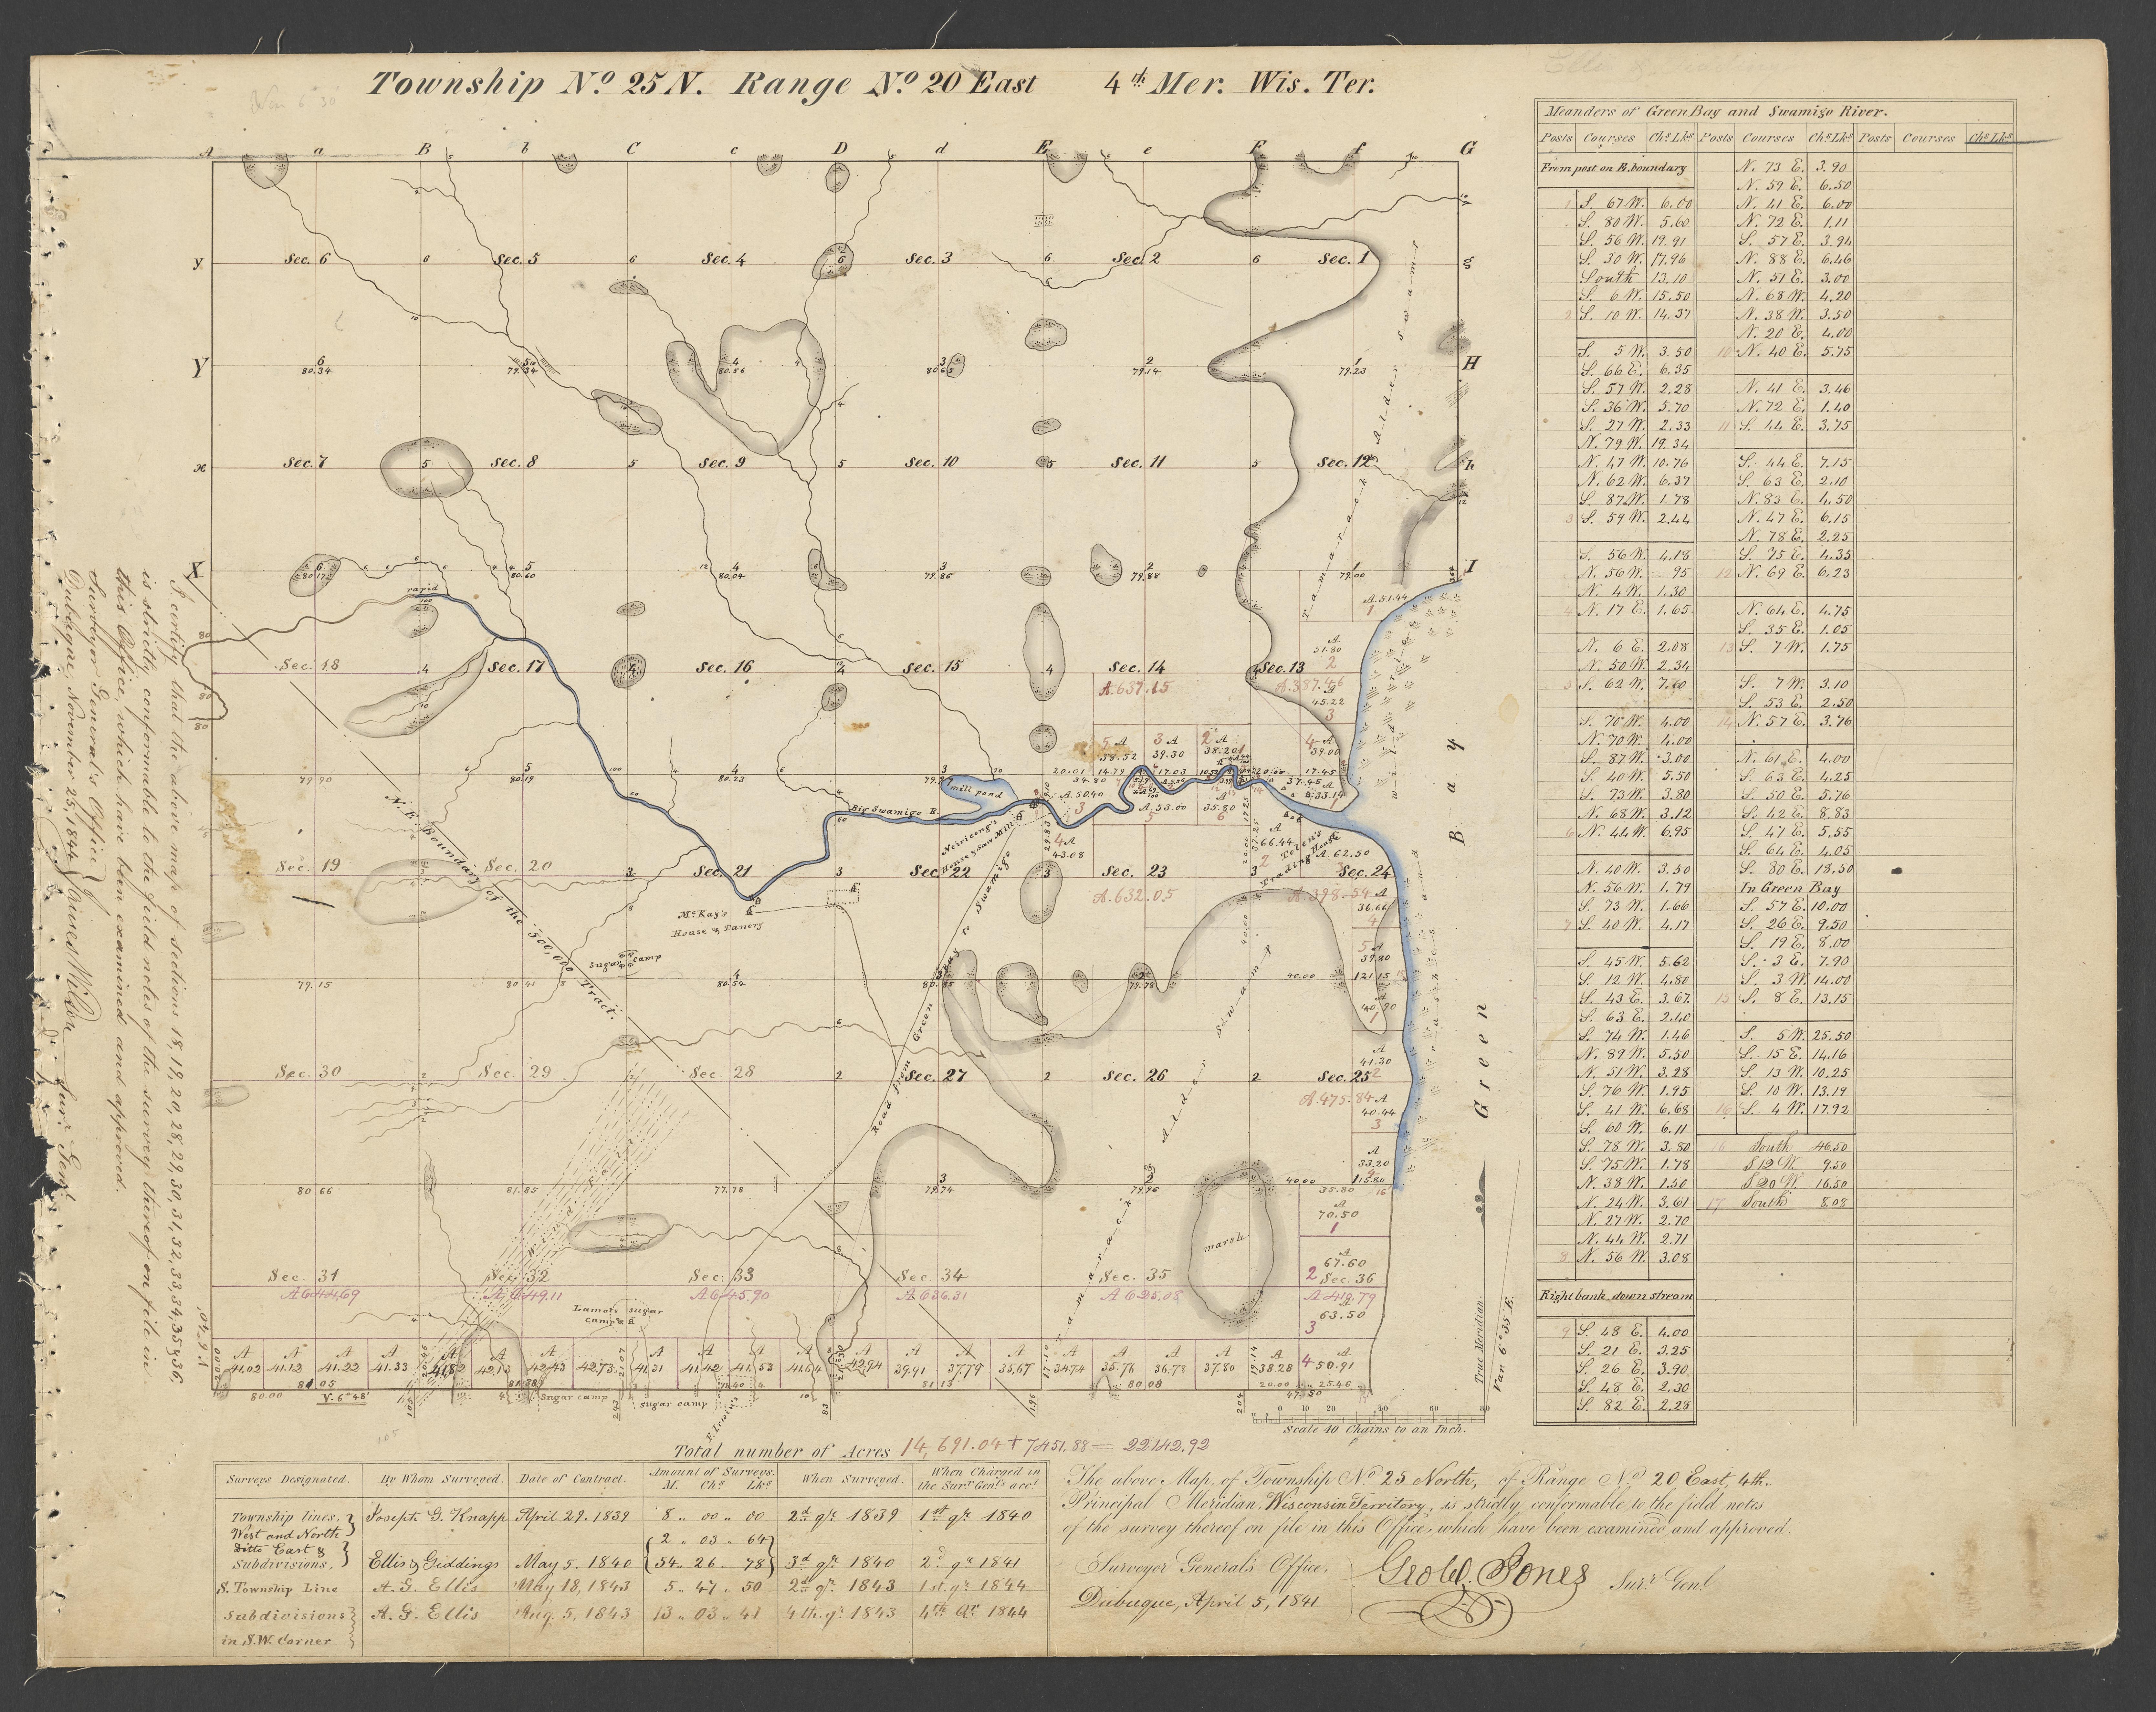 Township No. 25 N. Range No. 20 East 4th Mer. Wis. Ter.
A a B b C c D d E e F f G
y Sec. 6 6 Sec. 5 6 Sec. 4 6 Sec. 3 6 Sec. 2 6 Sec. 1 g
Y 6 80.34 79.34 4 80.56 3 2 79.14 1 79.23 H
x Sec. 7 5 Sec. 8 5 Sec. 9 5 Sec. 10 5 Sec. 11 5 Sec. 12 h
X 5 80.60 4 80.04 3 79.86 2 79.88 1 79.00 I
Tamarack Alder Swamp
rapid
A. 51.44
1
A
51.80
2
Sec. 18 4 Sec. 17 Sec. 16 4 Sec. 15 4 Sec. 14 Sec. 13
A. 637.15 A. 387.46
A
45.22
3
5 A 3 A 2 A 4 A
38.52 39.30 38.20 39.00
79.90 5 80.19 4 80.23 3 20.01 14.79 17.03 17.45
39.80 37.45
mill pond
A. 50.40
3
A. 53.00
5
A
35.80
6
A. 33.14
Big Swamigo R.
Neiricong's
House & Saw Mill
4 A
43.08
A
66.44
2
A. 62.50
Trading House
Sec. 19 Sec. 20 Sec. 21 3 Sec. 22 3 Sec. 23 3 Sec. 24
A. 632.05 A. 398.54
A
36.66
4
McKay's
House & Tanery
N.E. Boundary of the 500,000 Tract.
Sugar camp
5 A
39.80
79.15 80 41 4 80.54 2 79.78 40.00 121.15
A
40.90
1
Road from Green Bay to Swamigo
Tamarack Alder Swamp
wild rice and rushes
Green Bay
A
41.30
Sec. 30 2 Sec. 29 Sec. 28 2 Sec. 27 2 Sec. 26 2 Sec. 25 2
A. 475.84
A
40.44
3
A
33.20
4
80 66 81.85 77.78 3 79.74 2 79.96 40.00 15.80
35.80 16
Windfall
A
70.50
1
marsh
A
67.60
Sec. 31 Sec. 32 Sec. 33 Sec. 34 Sec. 35 2 Sec. 36
A 644.69 A 649.11 A 645.90 A 636.31 A 635.03 A 419.79
A
63.50
3
Lamott sugar
camp
A A A A A A A A A A A A A A A A A A A A A
41.02 41.12 41.22 41.33 41.82 42.13 42.43 42.73 41.31 41.42 41.53 41.64 42.94 39.91 37.79 35.67 34.74 35.76 36.78 37.80 38.28 4 50.91
81 05 81.88 78.40 81 13 80 08 20.00 25.46
80.00 V. 6° 48' Sugar camp sugar camp 47.50
True Meridian.
Var 6° 35' E.
0 10 20 40 60 80
Scale 40 Chains to an Inch.
Total number of Acres 14,691.04 + 7451.88 = 22142.92
I certify that the above map of Sections 18, 19, 20, 28, 29, 30, 31, 32, 33, 34, 35 & 36.
is strictly conformable to the field notes of the survey thereof on file in
this Office, which have been examined and approved.
Surveyor General's Office
Dubuque, November 25, 1844
James Wilson
Surr. Genl.
Meanders of Green Bay and Swamigo River.
Posts Courses Chs. Lks. Posts Courses Chs. Lks. Posts Courses Chs. Lks.
From post on E. boundary
1 S. 67 W. 6.00
S. 80 W. 5.60
S. 56 W. 19.91
S. 30 W. 17.96
South 13.10
S. 6 W. 15.50
2 S. 10 W. 14.37
S. 5 W. 3.50
S. 66 E. 6.35
S. 57 W. 2.28
S. 36 W. 5.70
S. 27 W. 2.33
N. 79 W. 19.34
N. 47 W. 10.76
N. 62 W. 6.37
S. 87 W. 1.78
3 S. 59 W. 2.44
S. 56 W. 4.18
N. 56 W. 95
N. 4 W. 1.30
4 N. 17 E. 1.65
N. 6 E. 2.08
N. 50 W. 2.34
5 S. 62 W. 7.60
S. 70 W. 4.00
N. 70 W. 4.00
S. 87 W. 3.00
S. 40 W. 5.50
S. 73 W. 3.80
N. 68 W. 3.12
6 N. 44 W. 6.95
N. 40 W. 3.50
N. 56 W. 1.79
S. 73 W. 1.66
7 S. 40 W. 4.17
S. 45 W. 5.62
S. 12 W. 4.80
S. 43 E. 3.67
S. 63 E. 2.40
S. 74 W. 1.46
N. 89 W. 5.50
N. 51 W. 3.28
S. 76 W. 1.95
S. 41 W. 6.68
S. 60 W. 6.11
S. 78 W. 3.80
S. 75 W. 1.78
N. 38 W. 1.50
N. 24 W. 3.61
N. 27 W. 2.70
N. 44 W. 2.71
8 N. 56 W. 3.08
Right bank, down stream
9 S. 48 E. 4.00
S. 21 E. 3.25
S. 26 E. 3.90
S. 48 E. 2.30
S. 82 E. 2.28
N. 73 E. 3.90
N. 59 E. 6.50
N. 41 E. 6.00
N. 72 E. 1.11
S. 57 E. 3.94
N. 88 E. 6.46
N. 51 E. 3.00
N. 68 W. 4.20
N. 38 W. 3.50
N. 20 E. 4.00
10 N. 40 E. 5.75
N. 41 E. 3.46
N. 72 E. 1.40
11 S. 44 E. 3.75
S. 44 E. 7.15
S. 63 E. 2.10
N. 83 E. 4.50
N. 47 E. 6.15
N. 78 E. 2.25
S. 75 E. 4.35
12 N. 69 E. 6.23
N. 64 E. 4.75
S. 35 E. 1.05
13 S. 7 W. 1.75
S. 7 W. 3.10
S. 53 E. 2.50
14 N. 57 E. 3.76
N. 61 E. 4.00
S. 63 E. 4.25
S. 50 E. 5.76
S. 42 E. 8.83
S. 47 E. 5.55
S. 64 E. 4.05
S. 80 E. 18.50
In Green Bay
S. 57 E. 10.00
S. 26 E. 9.50
S. 19 E. 8.00
S. 3 E. 7.90
S. 3 W. 14.00
15 S. 8 E. 13.15
S. 5 W. 25.50
S. 15 E. 14.16
S. 13 W. 10.25
S. 10 W. 13.19
16 S. 4 W. 17.92
16 South 46.50
S 12 W. 9.50
S. 20 W. 16.50
17 South 8.08
Surveys Designated. By Whom Surveyed. Date of Contract. Amount of Surveys. M. Chs. Lks. When Surveyed. When Charged in the Surr. Genl's acct.
Township lines, West and North Joseph G. Knapp April 29. 1839 8 " 00 " 00 2d qr. 1839 1st qr. 1840
Ditto East & Subdivisions. Ellis & Giddings May 5. 1840 2 " 03 " 64 54 " 26 " 78 3d qr. 1840 2d qr. 1841
S. Township Line A. G. Ellis May 18, 1843 5 " 47 " 50 2d qr. 1843 1st. qr. 1844
Subdivisions in S.W. Corner A. G. Ellis Aug. 5, 1843 13 " 03 " 41 4th. qr. 1843 4th Qr. 1844
The above Map of Township No. 25 North, of Range No. 20 East, 4th.
Principal Meridian, Wisconsin Territory, is strictly conformable to the field notes
of the survey thereof on file in this Office, which have been examined and approved.
Surveyor General's Office,
Dubuque, April 5, 1841
Geo W. Jones Surr. Genl